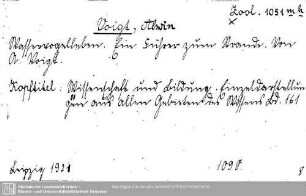 Zool. 1051 mk
x
Voigt, Alwin
Wasservogelleben. Ein Führer zum Strande. Von
A. Voigt.
Kopftitel: Wissenschaft und Bildung. Einzeldarstellun
gen aus allen Gebieten des Wissens Bd. 161
Leipzig 1921
1090.